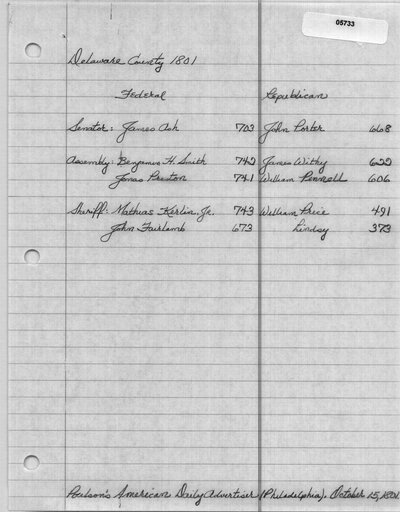 05733
Delaware County 1801
Federal Republican
Senator: James Ash 703 John Porter 668
Assembly: Benjamin H. Smith 742 James Withy 622
Jonas Preston 741 William Pennell 606
Sheriff: Mathias Kerlin, Jr. 743 William Price 491
John Fairlamb 673 Lindsy 373
Poulson's American Daily Advertiser (Philadelphia). October 15, 1801.